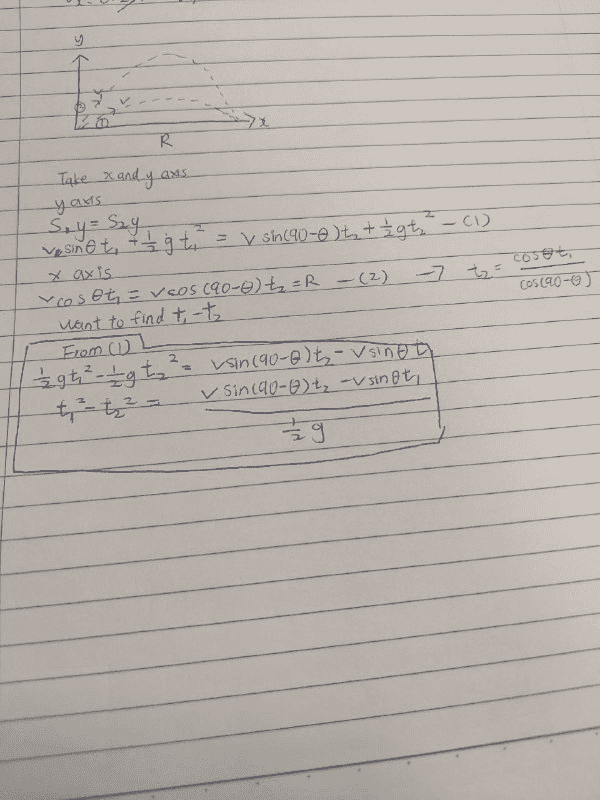 y
v
v
x
R
Take x and y axis
y axis
S₁y = S₂y
v sinθ t₁ + ½ g t₁² = v sin(90-θ)t₂ + ½gt₂² — (1)
x axis
v cosθt₁ = vcos(90-θ)t₂ = R — (2) → t₂ = cosθt₁ / cos(90-θ)
want to find t₁-t₂
From (1)
½gt₁² - ½gt₂² = vsin(90-θ)t₂ - vsinθt₁
t₁² - t₂² = v sin(90-θ)t₂ - vsinθt₁ / ½ g